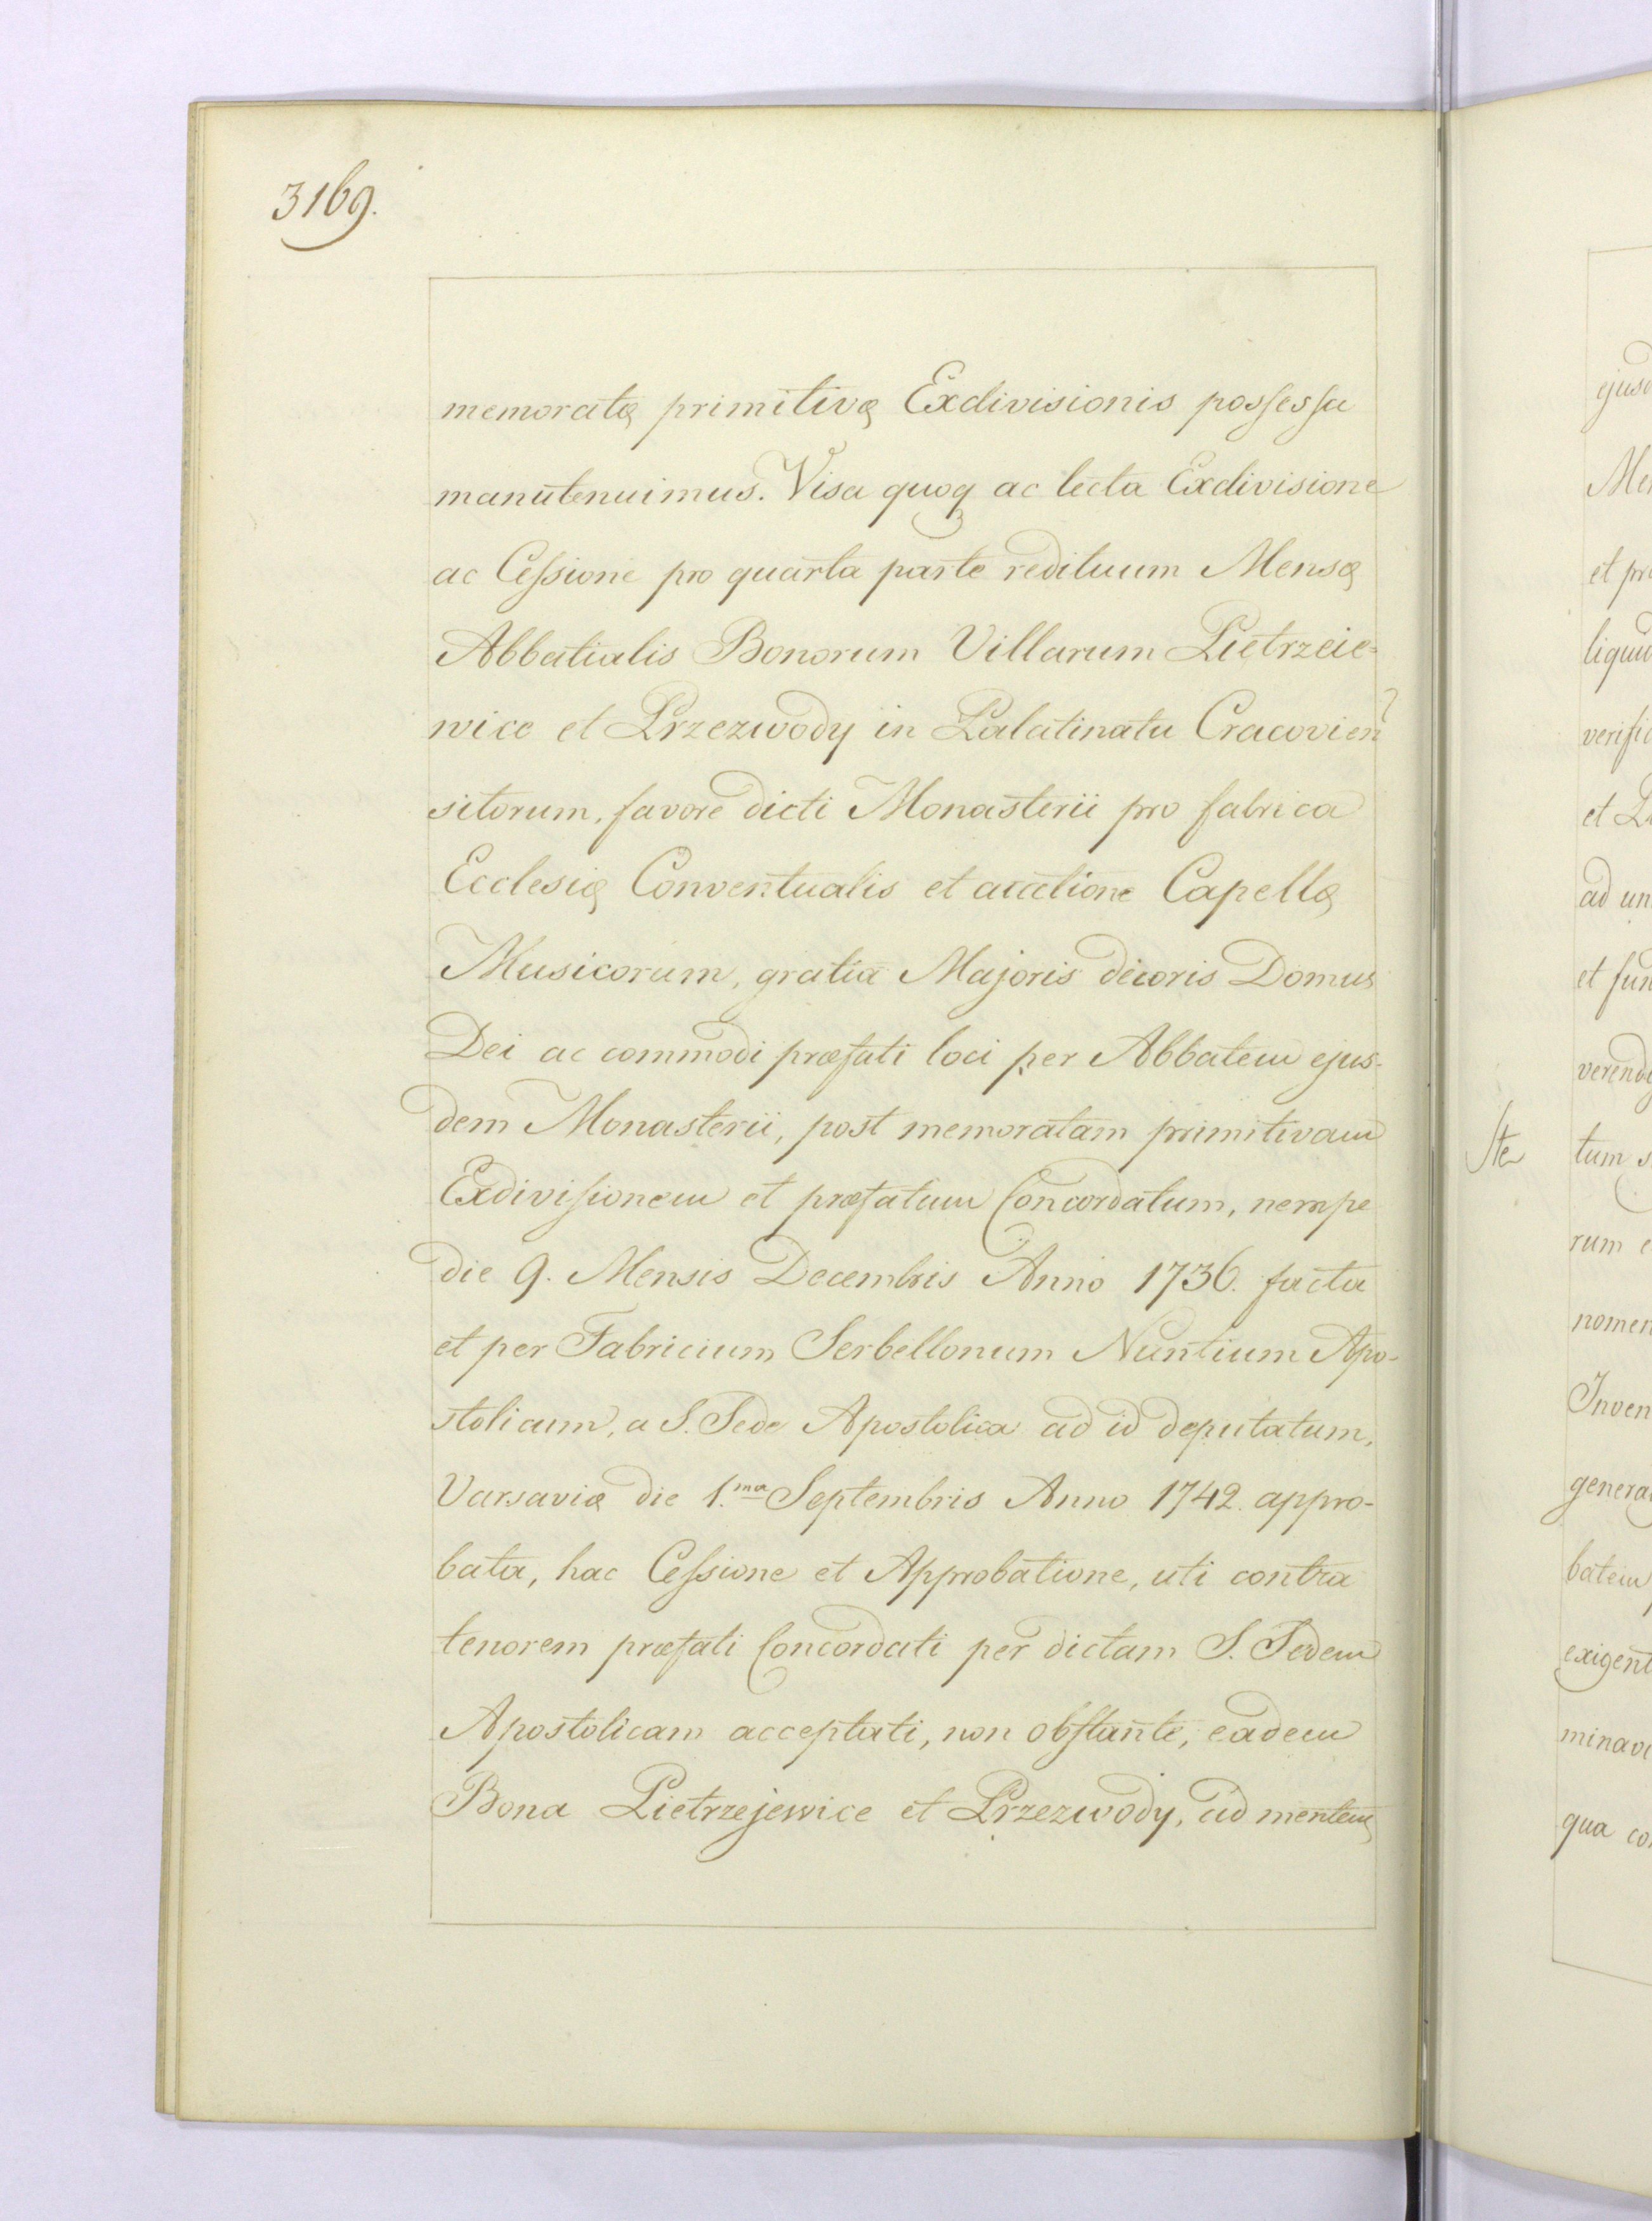 3169.
memoratę primitivę Exdivisionis possessa
manutenuimus. Visa quoq ac lecta Exdivisione
ac Cessione pro quarta parte redituum Mensę
Abbatialis Bonorum Villarum Pietrzeie=
wice et Przezwody in Palatinatu Cracovien
sitorum, favore dicti Monasterii pro fabrica
Ecclesię Conventualis et auctione Capellę
Musicorum, gratia Majoris decoris Domus
Dei ac commodi præfati loci per Abbatem ejus-
dem Monasterii, post memoratam primitivam
Exdivisionem et præfatum Concordatum, nempe
die 9. Mensis Decembris Anno 1736. facta
et per Fabricium Serbellonum Nuntium Apo-
stolicum, a S. Sede Apostolica ad id deputatum,
Varsaviæ die 1.ma Septembris Anno 1742. appro-
bata, hac Cessione et Approbatione, uti contra
tenorem præfati Concordati per dictam S. Sedem
Apostolicam acceptati, non obstante, eadem
Bona Pietrzejewice et Przezwody, ad mentem
et
liquid
verific
et
ad un
et fun
verend
tum
rum
nomen
Inven
genera
batem
exigent
minavi
qua